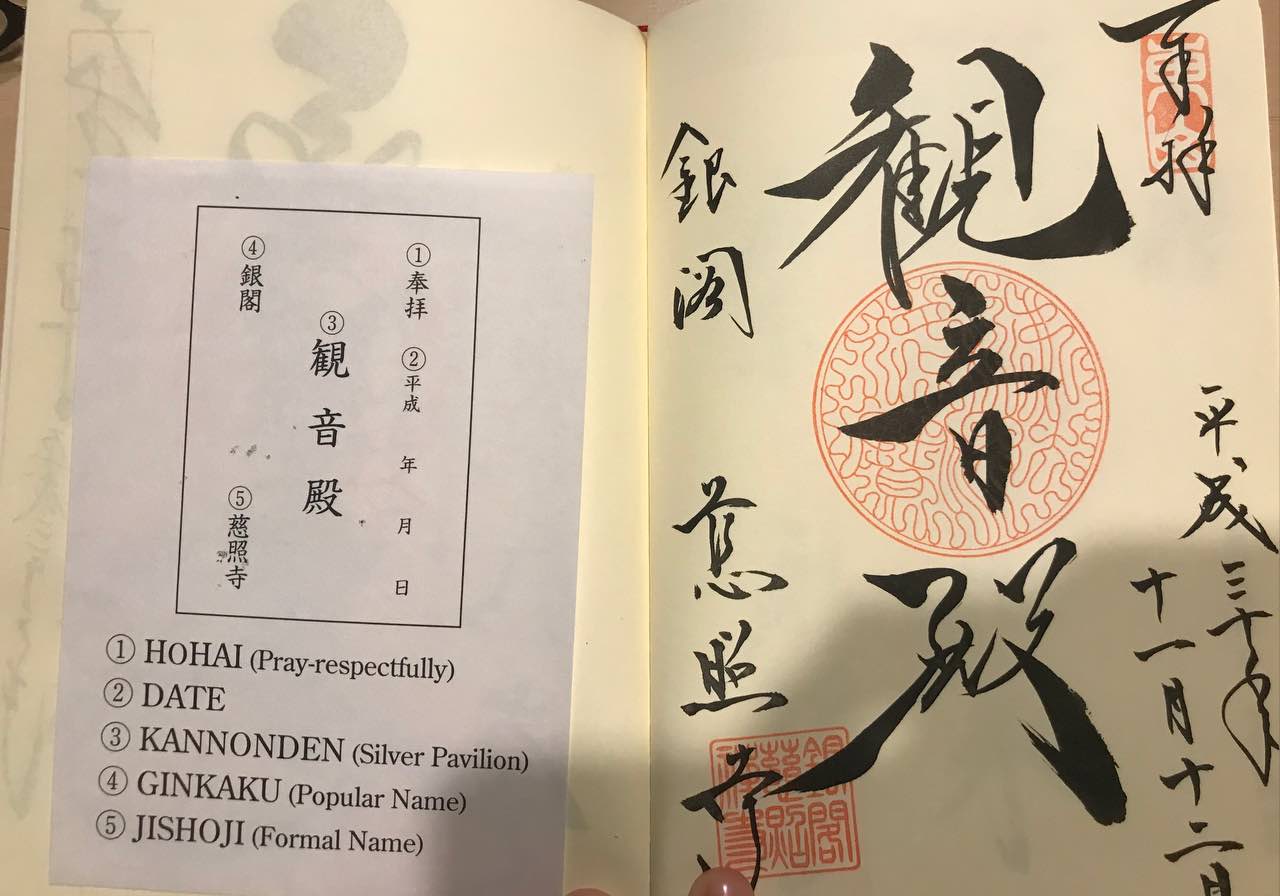 ①奉拝 ②平成 年 月 日
③観音殿
④銀閣 ⑤慈照寺
① HOHAI (Pray-respectfully)
② DATE
③ KANNONDEN (Silver Pavilion)
④ GINKAKU (Popular Name)
⑤ JISHOJI (Formal Name)
奉拝
平成三十年
十一月十二日
観音殿
銀閣 慈照寺
銀閣
慈照